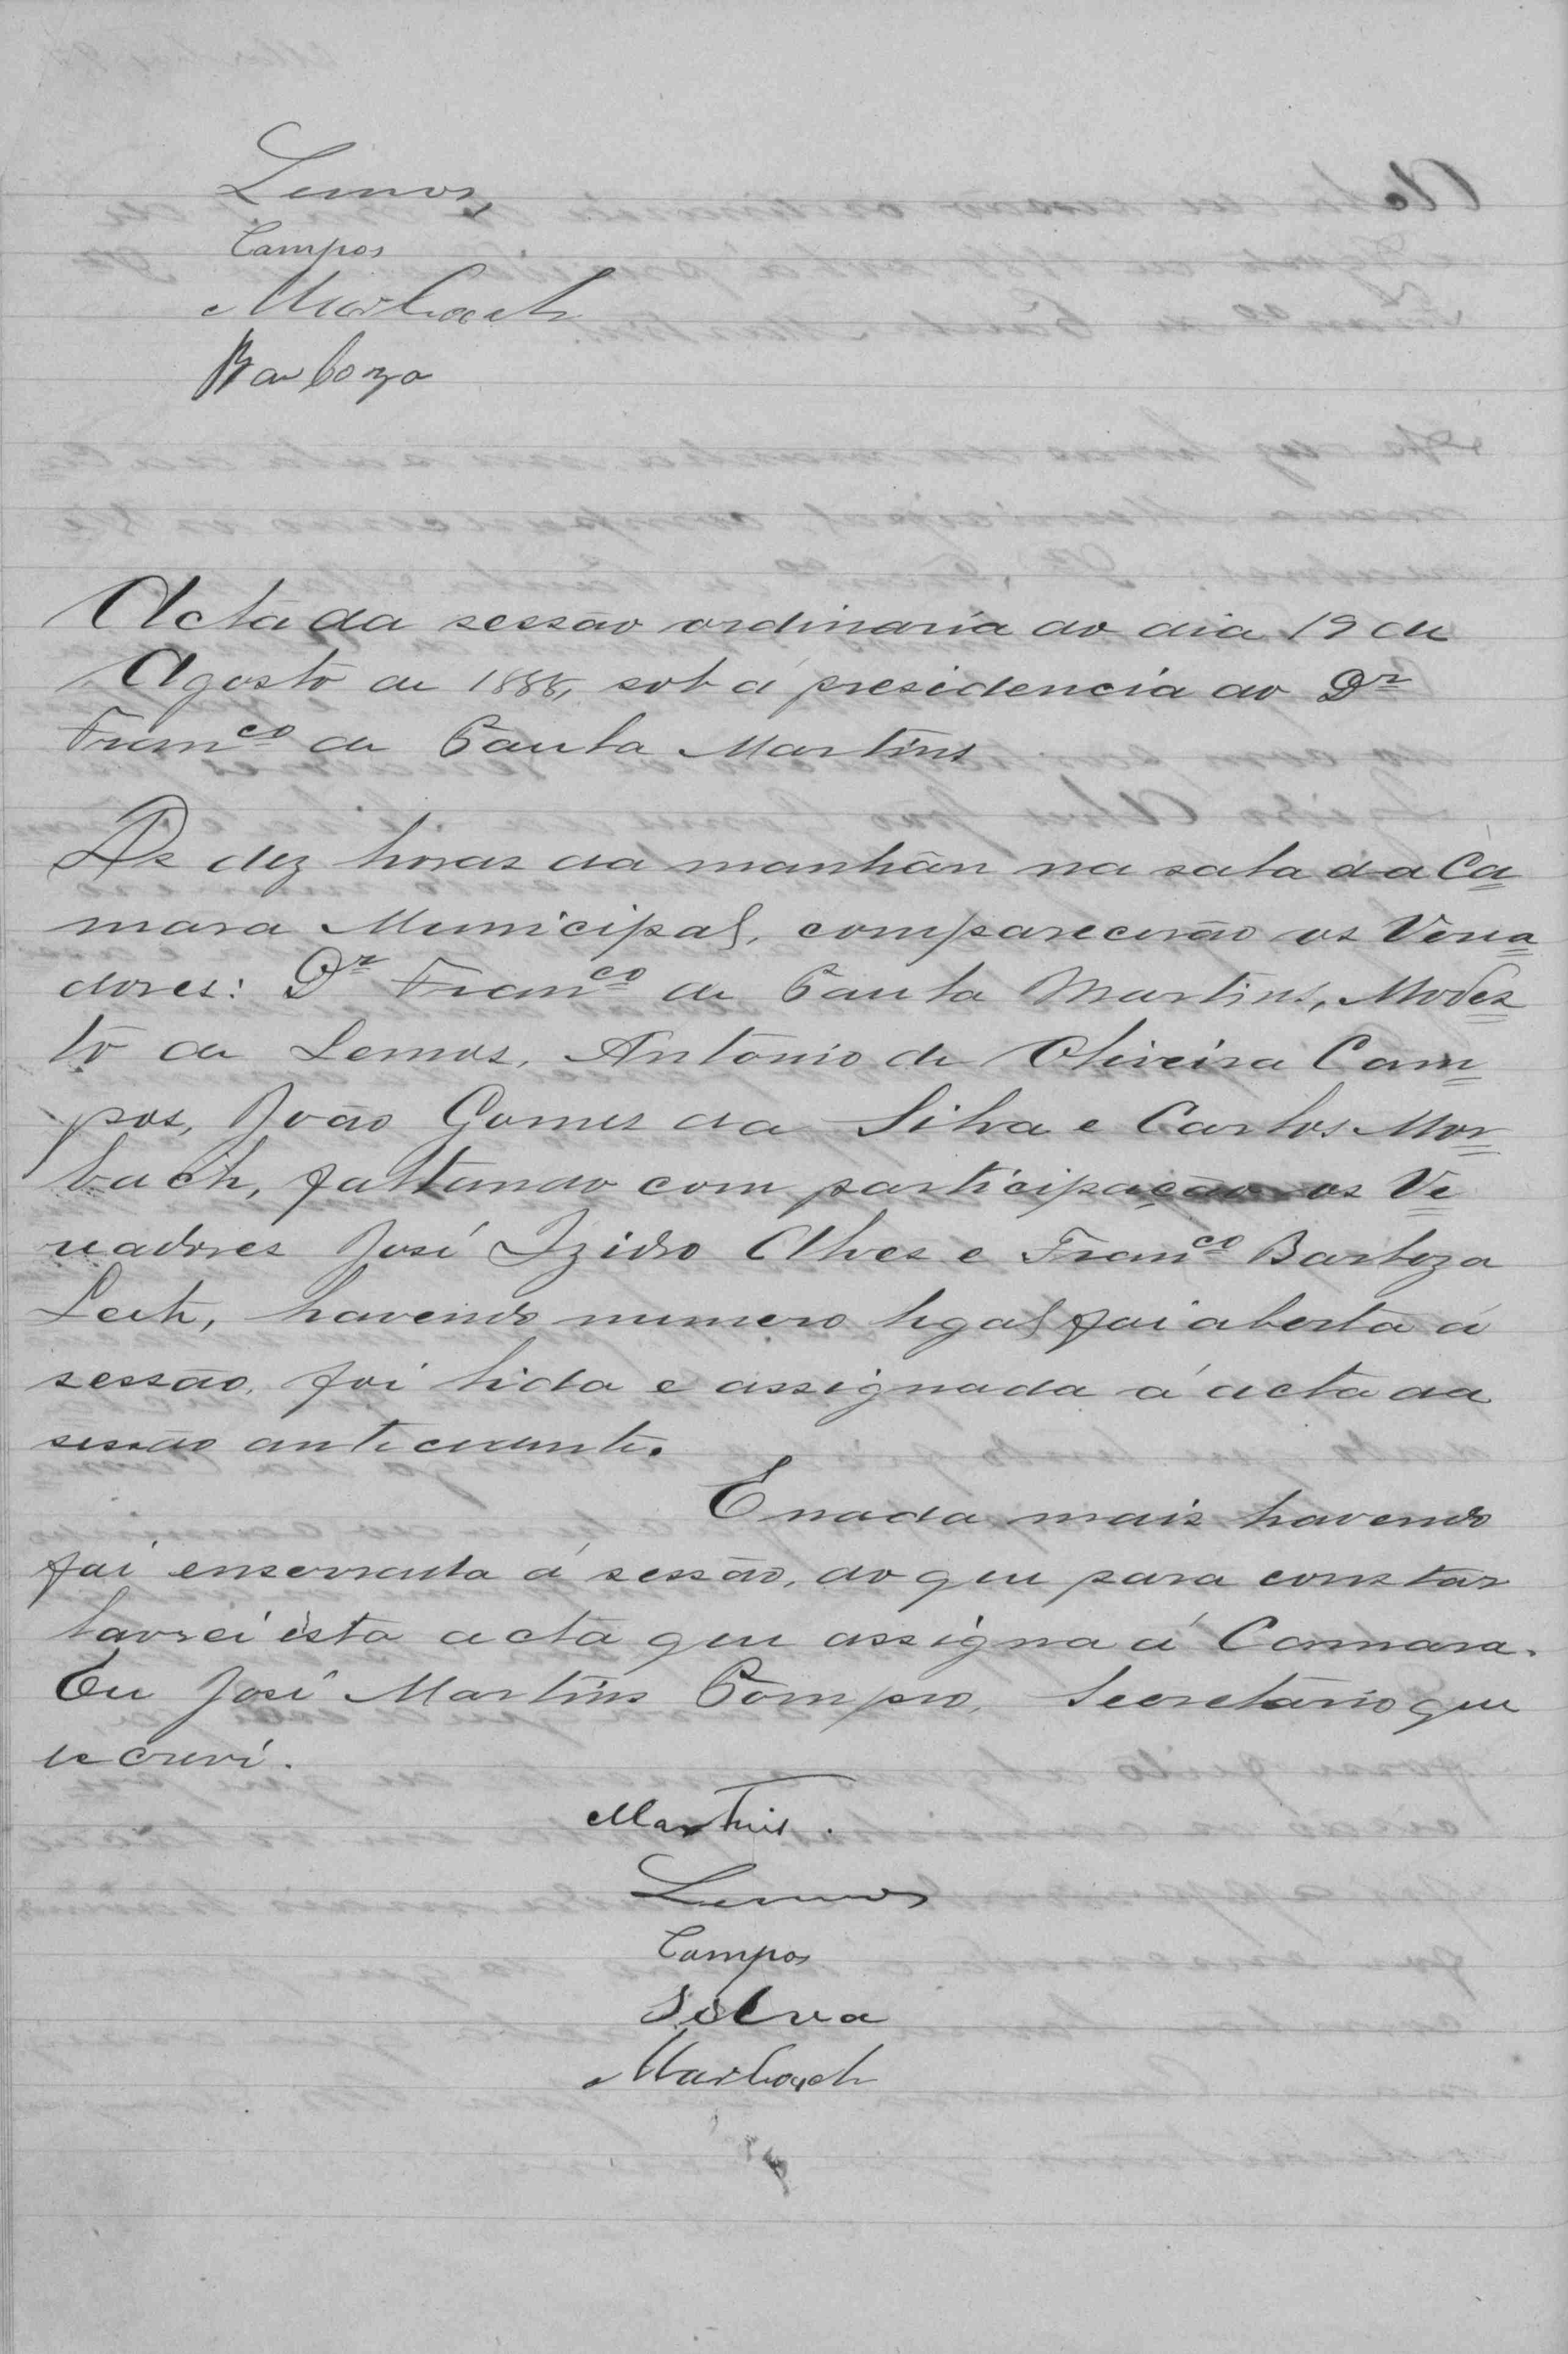 Lemos,
Campos
Morbach
Barboza
Acta da sessão ordinaria do dia 19 de
Agosto de 1888, sob á presidencia do Dr
Franco de Paula Martins
As dez horas da manhãn na sala da Ca=
mara Municipal, comparecerão os Verea=
dores: Dr Franco de Paula Martins, Modes=
to de Lemos, Antonio de Oliveira Cam=
pos, João Gomes da Silva e Carlos Mor=
bach, faltando com participação os Ve=
readores José Izidro Alves e Franco Barboza
Leite, havendo numero legal foi aberta á
sessão, foi lida e assignada á acta da
sessão antecedente.
E nada mais havendo
foi enserrada á sessão, do que para constar
lavrei esta acta que assigna á Camara.
Eu José Martins Bompro, Secretario que
escrevi.
Martins.
Lemos
Campos
Silva
Morbach